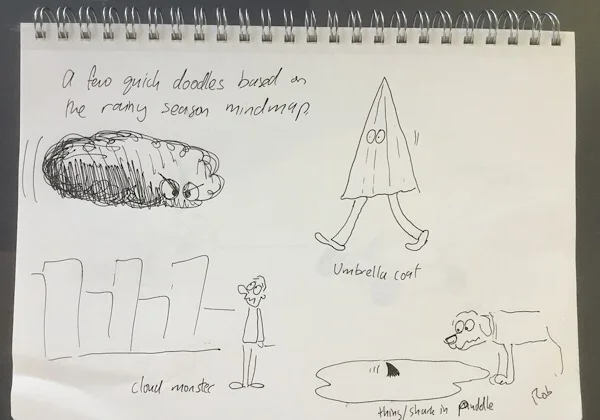 A few quick doodles based on
the rainy season mindmap.
Umbrella coat
cloud monster
thing/shark in puddle
Rob